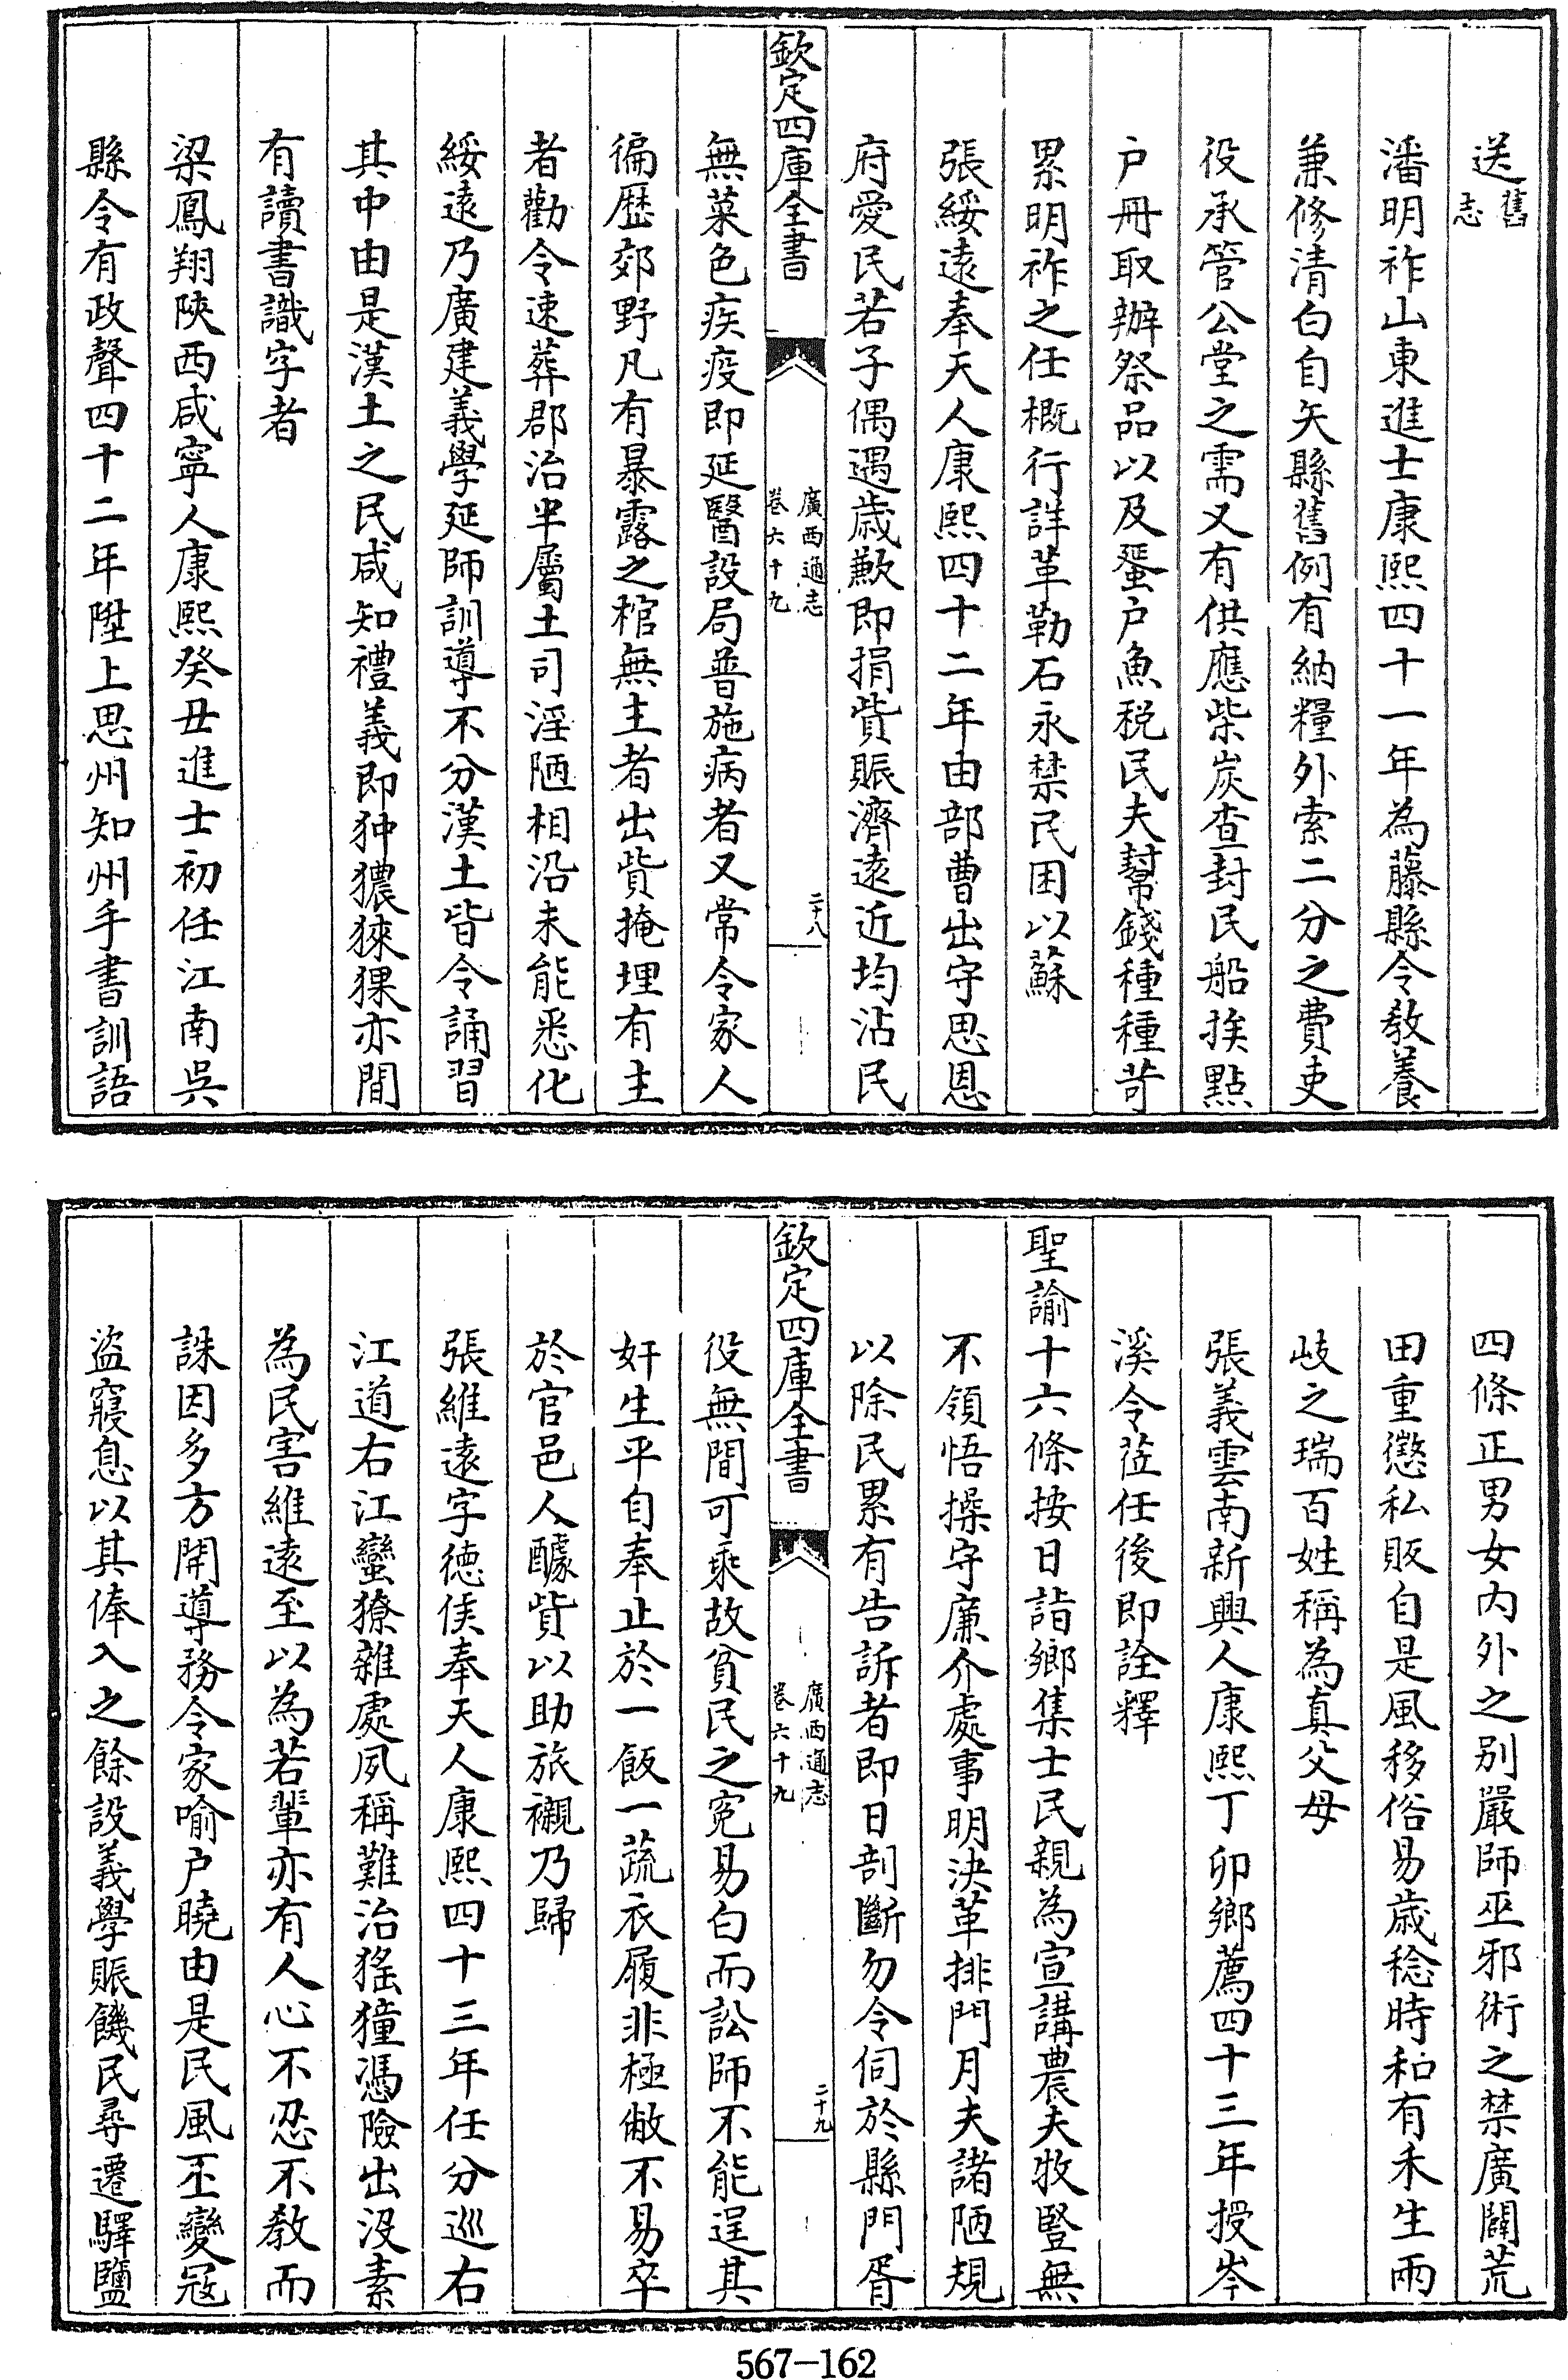 送舊志
潘明祚山東進士康熙四十一年為藤縣令教養
兼修清白自矢縣舊例有納糧外索二分之費吏
役承管公堂之需又有供應柴炭查封民船挨點
户冊取辦祭品以及蜑户魚税民夫幫錢種種苛
累明祚之任概行詳革勒石永禁民困以蘇
張綏遠奉天人康熙四十二年由部曹出守思恩
府愛民若子偶遇歳歉即捐貲賑濟遠近均沾民
欽定四庫全書
廣西通志
卷六十九
二十八
無菜色疾疫即延醫設局普施病者又常令家人
徧歷郊野凡有暴露之棺無主者出貲掩埋有主
者勸令速葬郡治半屬土司淫陋相沿未能悉化
綏遠乃廣建義學延師訓導不分漢土皆令誦習
其中由是漢土之民咸知禮義即狆獽猍猓亦間
有讀書識字者
梁鳳翔陝西咸寧人康熙癸丑進士初任江南吳
縣令有政聲四十二年陞上思州知州手書訓語
四條正男女内外之别嚴師巫邪術之禁廣闢荒
田重懲私販自是風移俗易歳稔時和有禾生兩
歧之瑞百姓稱為真父母
張義雲南新興人康熙丁卯鄉薦四十三年授岑
溪令莅任後即詮釋
聖諭十六條按日詣鄉集士民親為宣講農夫牧豎無
不領悟操守廉介處事明決革排門月夫諸陋規
以除民累有告訴者即日剖斷勿令伺於縣門胥
欽定四庫全書
廣西通志
卷六十九
二十九
役無間可乘故貧民之寃易白而訟師不能逞其
奸生平自奉止於一飯一蔬衣履非極敝不易卒
於官邑人醵貲以助旅櫬乃歸
張維遠字徳侯奉天人康熙四十三年任分巡右
江道右江蠻獠雜處夙稱難治猺獞憑險出没素
為民害維遠至以為若輩亦有人心不忍不教而
誅因多方開導務令家喻户曉由是民風丕變冦
盜寢息以其俸入之餘設義學賑饑民尋遷驛鹽
567-162